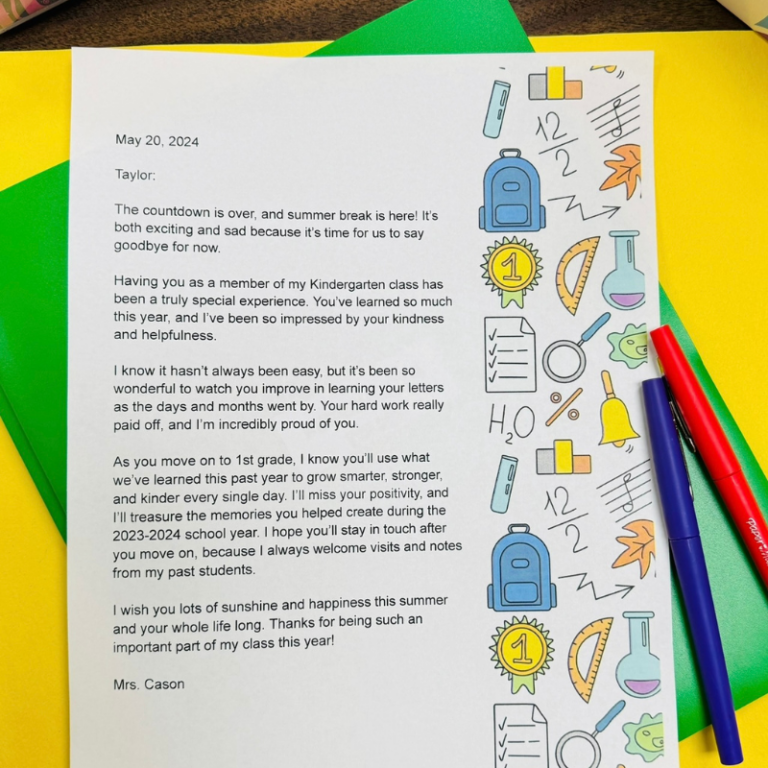 May 20, 2024
Taylor:
The countdown is over, and summer break is here! It's
both exciting and sad because it's time for us to say
goodbye for now.
Having you as a member of my Kindergarten class has
been a truly special experience. You've learned so much
this year, and I've been so impressed by your kindness
and helpfulness.
I know it hasn't always been easy, but it's been so
wonderful to watch you improve in learning your letters
as the days and months went by. Your hard work really
paid off, and I'm incredibly proud of you.
As you move on to 1st grade, I know you'll use what
we've learned this past year to grow smarter, stronger,
and kinder every single day. I'll miss your positivity, and
I'll treasure the memories you helped create during the
2023-2024 school year. I hope you'll stay in touch after
you move on, because I always welcome visits and notes
from my past students.
I wish you lots of sunshine and happiness this summer
and your whole life long. Thanks for being such an
important part of my class this year!
Mrs. Cason
12
2
1
H₂O %
12
2
1